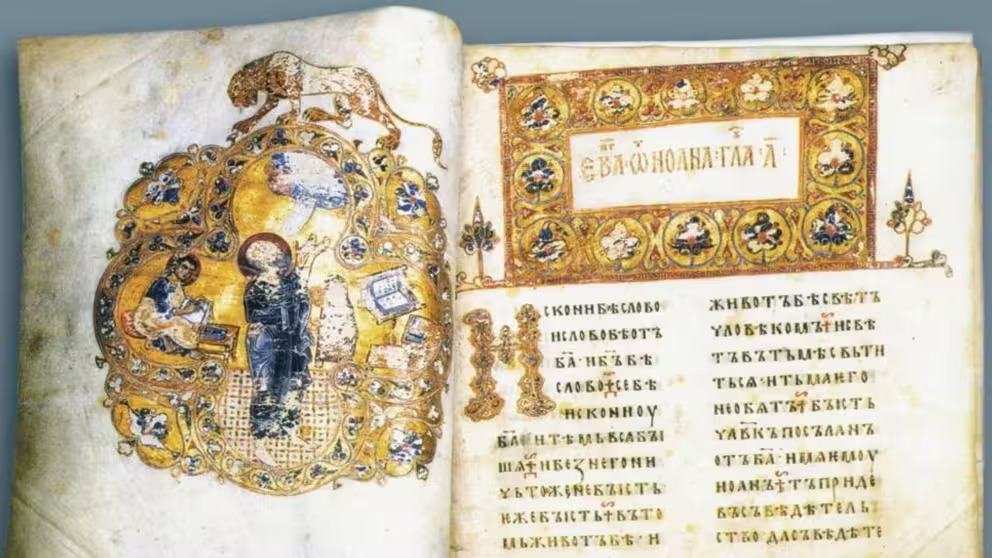 ЕВⷢ҇А·ѾИОАНА·ГЛАⷡ҇·А҃:
ИСКОНИБѢСЛОВО
ИСЛОВОБѢОТЪ
Б҃А·ИБ҃ЪБѢ
СЛОВО⁜СЕБѢ
ИСКОНИОУ
Б҃АИТѢМЬВЬСАБꙐ
ШѦ⁜ИБЕЗНЕГОНИ
ЧЬТОЖЕНЕБꙐСТЬ
ѤЖЕБꙐСТЬ⁜ВЪТО
МЬЖИВОТЪБѢ·И
ЖИВОТЪБѢСВѢТЪ
ЧЛОВѢКОМЪ⁜ИСВѢ
ТЪВЪТЬМѢСВЬТИ
ТЬСѦ·ИТЬМАѤГО
НЕОБѦТЪ⁜БꙐСТЬ
ЧЛ҃ВКЪПОСЪЛАНЪ
ОТЪБ҃А·ИМѦѤМОУ
ИОАНЪ⁜ТЪПРИДЕ
ВЪСЪВѢДѢТЕЛЬ
СТВО·ДАСЪВѢДѢТЕ